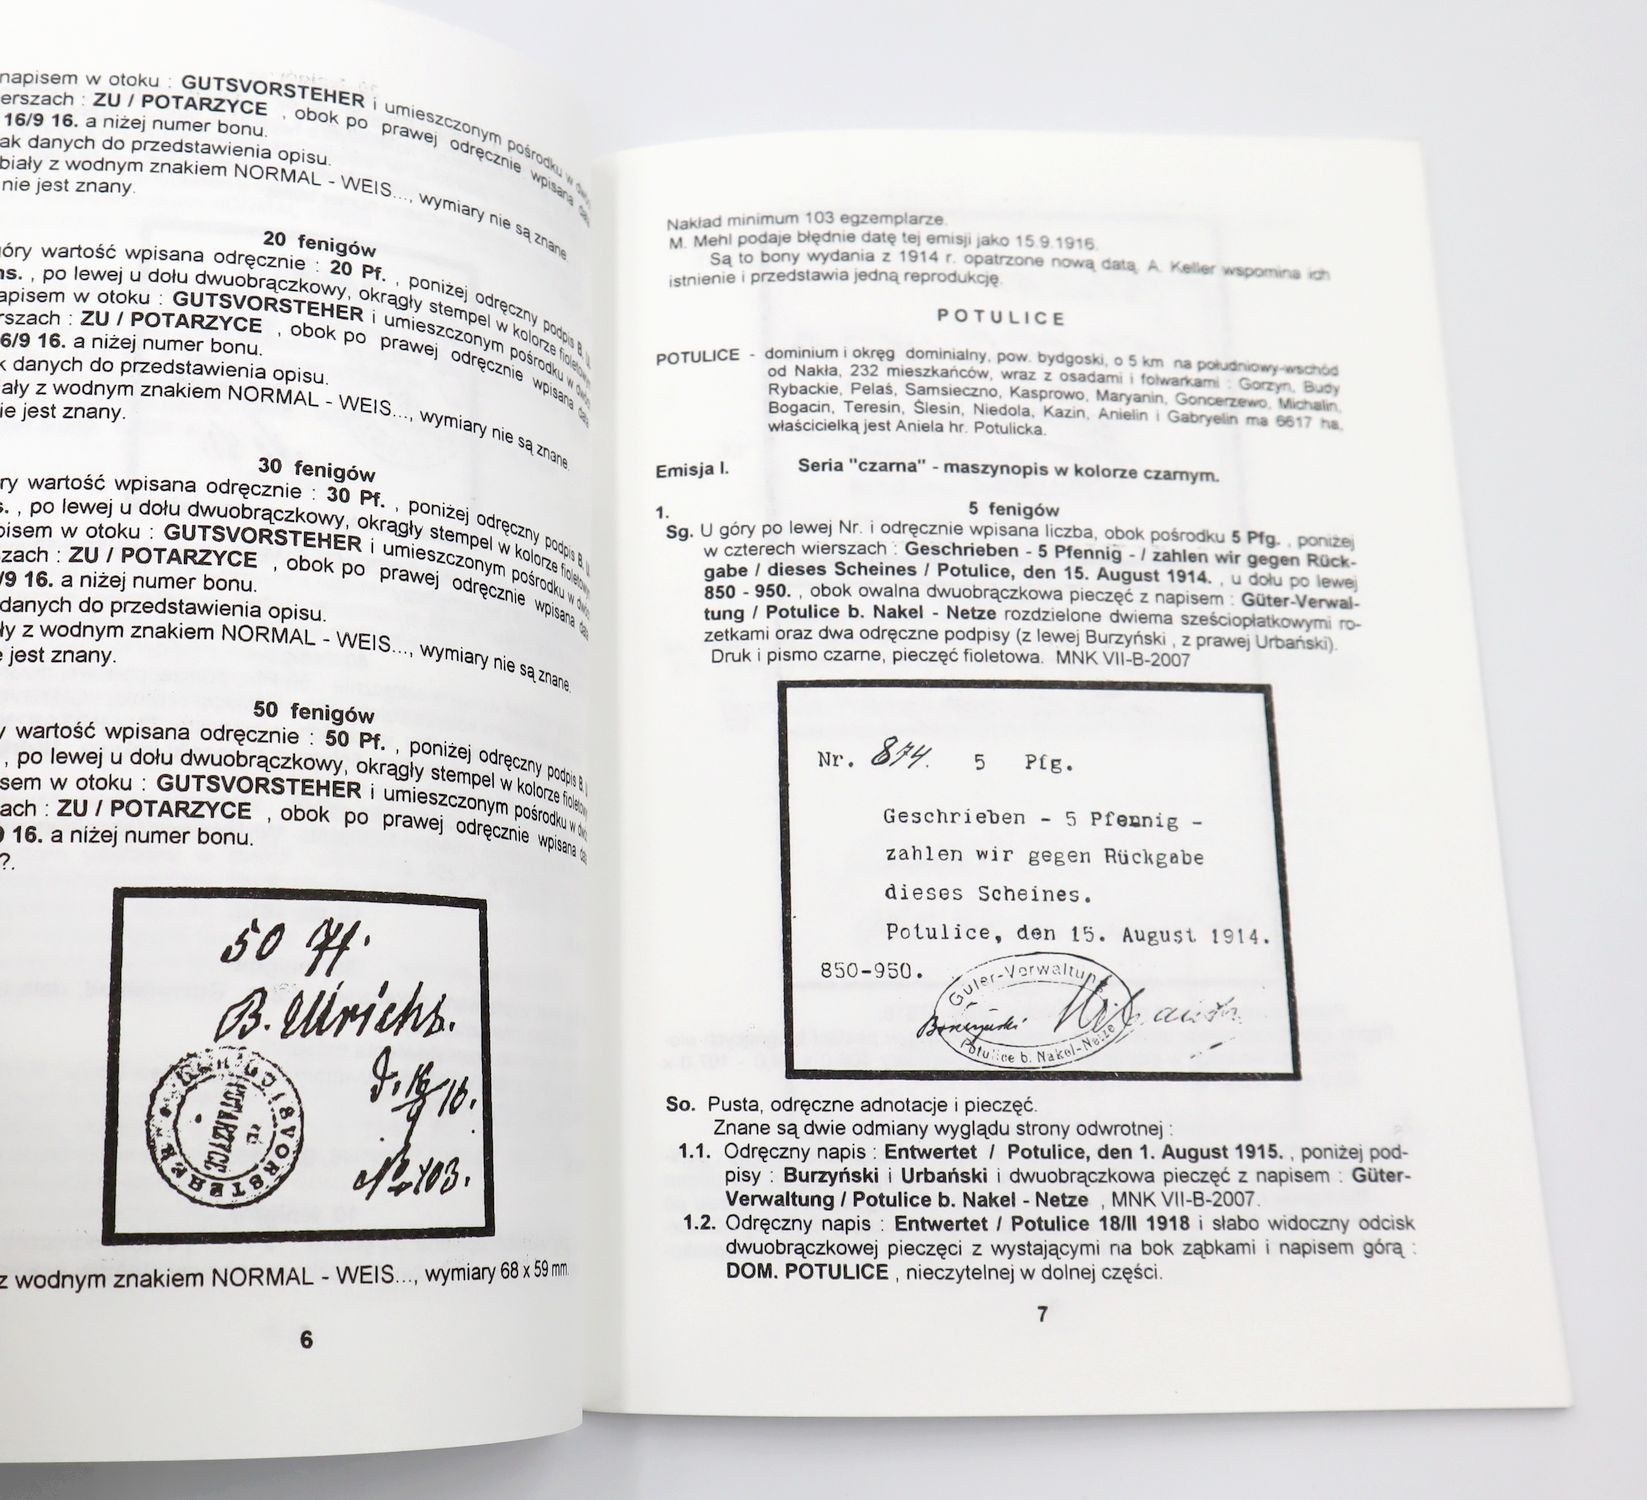 napisem w otoku : GUTSVORSTEHER i umieszczonym pośrodku w dwóch
erszach : ZU / POTARZYCE , obok po prawej odręcznie wpisana data
16/9 16. a niżej numer bonu.
ak danych do przedstawienia opisu.
biały z wodnym znakiem NORMAL - WEIS..., wymiary nie są znane.
nie jest znany.
20 fenigów
góry wartość wpisana odręcznie : 20 Pf. , poniżej odręczny podpis B. U.
ns. , po lewej u dołu dwuobrączkowy, okrągły stempel w kolorze fioletowym
apisem w otoku : GUTSVORSTEHER i umieszczonym pośrodku w dwóch
rszach : ZU / POTARZYCE , obok po prawej odręcznie wpisana data
6/9 16. a niżej numer bonu.
k danych do przedstawienia opisu.
ały z wodnym znakiem NORMAL - WEIS..., wymiary nie są znane.
ie jest znany.
30 fenigów
ry wartość wpisana odręcznie : 30 Pf. , poniżej odręczny podpis B. U.
s. , po lewej u dołu dwuobrączkowy, okrągły stempel w kolorze fioletowym
pisem w otoku : GUTSVORSTEHER i umieszczonym pośrodku w dwóch
szach : ZU / POTARZYCE , obok po prawej odręcznie wpisana data
/9 16. a niżej numer bonu.
danych do przedstawienia opisu.
ły z wodnym znakiem NORMAL - WEIS..., wymiary nie są znane.
e jest znany.
50 fenigów
y wartość wpisana odręcznie : 50 Pf. , poniżej odręczny podpis B. U
, po lewej u dołu dwuobrączkowy, okrągły stempel w kolorze fioletowy
sem w otoku : GUTSVORSTEHER i umieszczonym pośrodku w dwó
ach : ZU / POTARZYCE , obok po prawej odręcznie wpisana da
9 16. a niżej numer bonu.
?.
50 Pf.
B. Ulrichs.
d. 16/9 16.
No 103.
GUTSVORSTEHER
ZU
POTARZYCE
z wodnym znakiem NORMAL - WEIS..., wymiary 68 x 59 mm.
6
Nakład minimum 103 egzemplarze.
M. Mehl podaje błędnie datę tej emisji jako 15.9.1916.
Są to bony wydania z 1914 r. opatrzone nową datą. A. Keller wspomina ich
istnienie i przedstawia jedną reprodukcję.
POTULICE
POTULICE - dominium i okręg dominialny, pow. bydgoski, o 5 km na południowy-wschód
od Nakła, 232 mieszkańców, wraz z osadami i folwarkami : Gorzyn, Budy
Rybackie, Pelaś, Samsieczno, Kasprowo, Maryanin, Goncerzewo, Michalin,
Bogacin, Teresin, Ślesin, Niedola, Kazin, Anielin i Gabryelin ma 6617 ha,
właścicielką jest Aniela hr. Potulicka.
Emisja I. Seria "czarna" - maszynopis w kolorze czarnym.
1. 5 fenigów
Sg. U góry po lewej Nr. i odręcznie wpisana liczba, obok pośrodku 5 Pfg. , poniżej
w czterech wierszach : Geschrieben - 5 Pfennig - / zahlen wir gegen Rück-
gabe / dieses Scheines / Potulice, den 15. August 1914. , u dołu po lewej
850 - 950. , obok owalna dwuobrączkowa pieczęć z napisem : Güter-Verwal-
tung / Potulice b. Nakel - Netze rozdzielone dwiema sześciopłatkowymi ro-
zetkami oraz dwa odręczne podpisy (z lewej Burzyński , z prawej Urbański).
Druk i pismo czarne, pieczęć fioletowa. MNK VII-B-2007
Nr. 874. 5 Pfg.
Geschrieben - 5 Pfennig -
zahlen wir gegen Rückgabe
dieses Scheines.
Potulice, den 15. August 1914.
850-950.
Güter-Verwaltung
Burzyński
Potulice b. Nakel-Netze
So. Pusta, odręczne adnotacje i pieczęć.
Znane są dwie odmiany wyglądu strony odwrotnej :
1.1. Odręczny napis : Entwertet / Potulice, den 1. August 1915. , poniżej pod-
pisy : Burzyński i Urbański i dwuobrączkowa pieczęć z napisem : Güter-
Verwaltung / Potulice b. Nakel - Netze , MNK VII-B-2007.
1.2. Odręczny napis : Entwertet / Potulice 18/II 1918 i słabo widoczny odcisk
dwuobrączkowej pieczęci z wystającymi na bok ząbkami i napisem górą :
DOM. POTULICE , nieczytelnej w dolnej części.
7